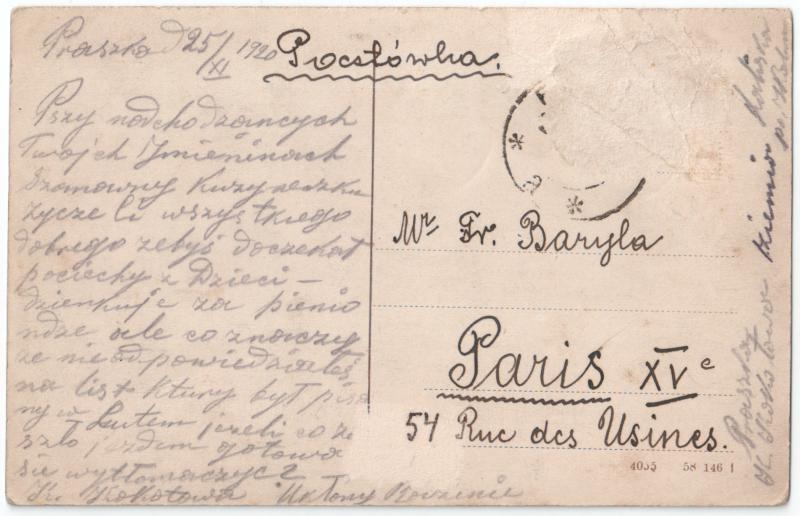 Praszka d 25/XI 1920
Pocstówka.
Pszy nadchodzancych
Twojch Jmieninach
Szanowny Kuzyneczku
życze Ci wszystkiego
dobrego żebyś doczekał
pociechy z Dzieci –
dzienkuje za pienio
ndze ale co znaczy
że nieodpowiedziałeś
na list ktury był pisa
ny w Lutem jeżeli co za
szło jezdem gotowa
sie wytłomaczyc
Kokotowa Ukłony Rodzinie
Mr Fr. Baryla
Paris XVe
54 Rue des Usines.
4055 58 146 1
Praszka
Kokotowa ziemia Kaliska